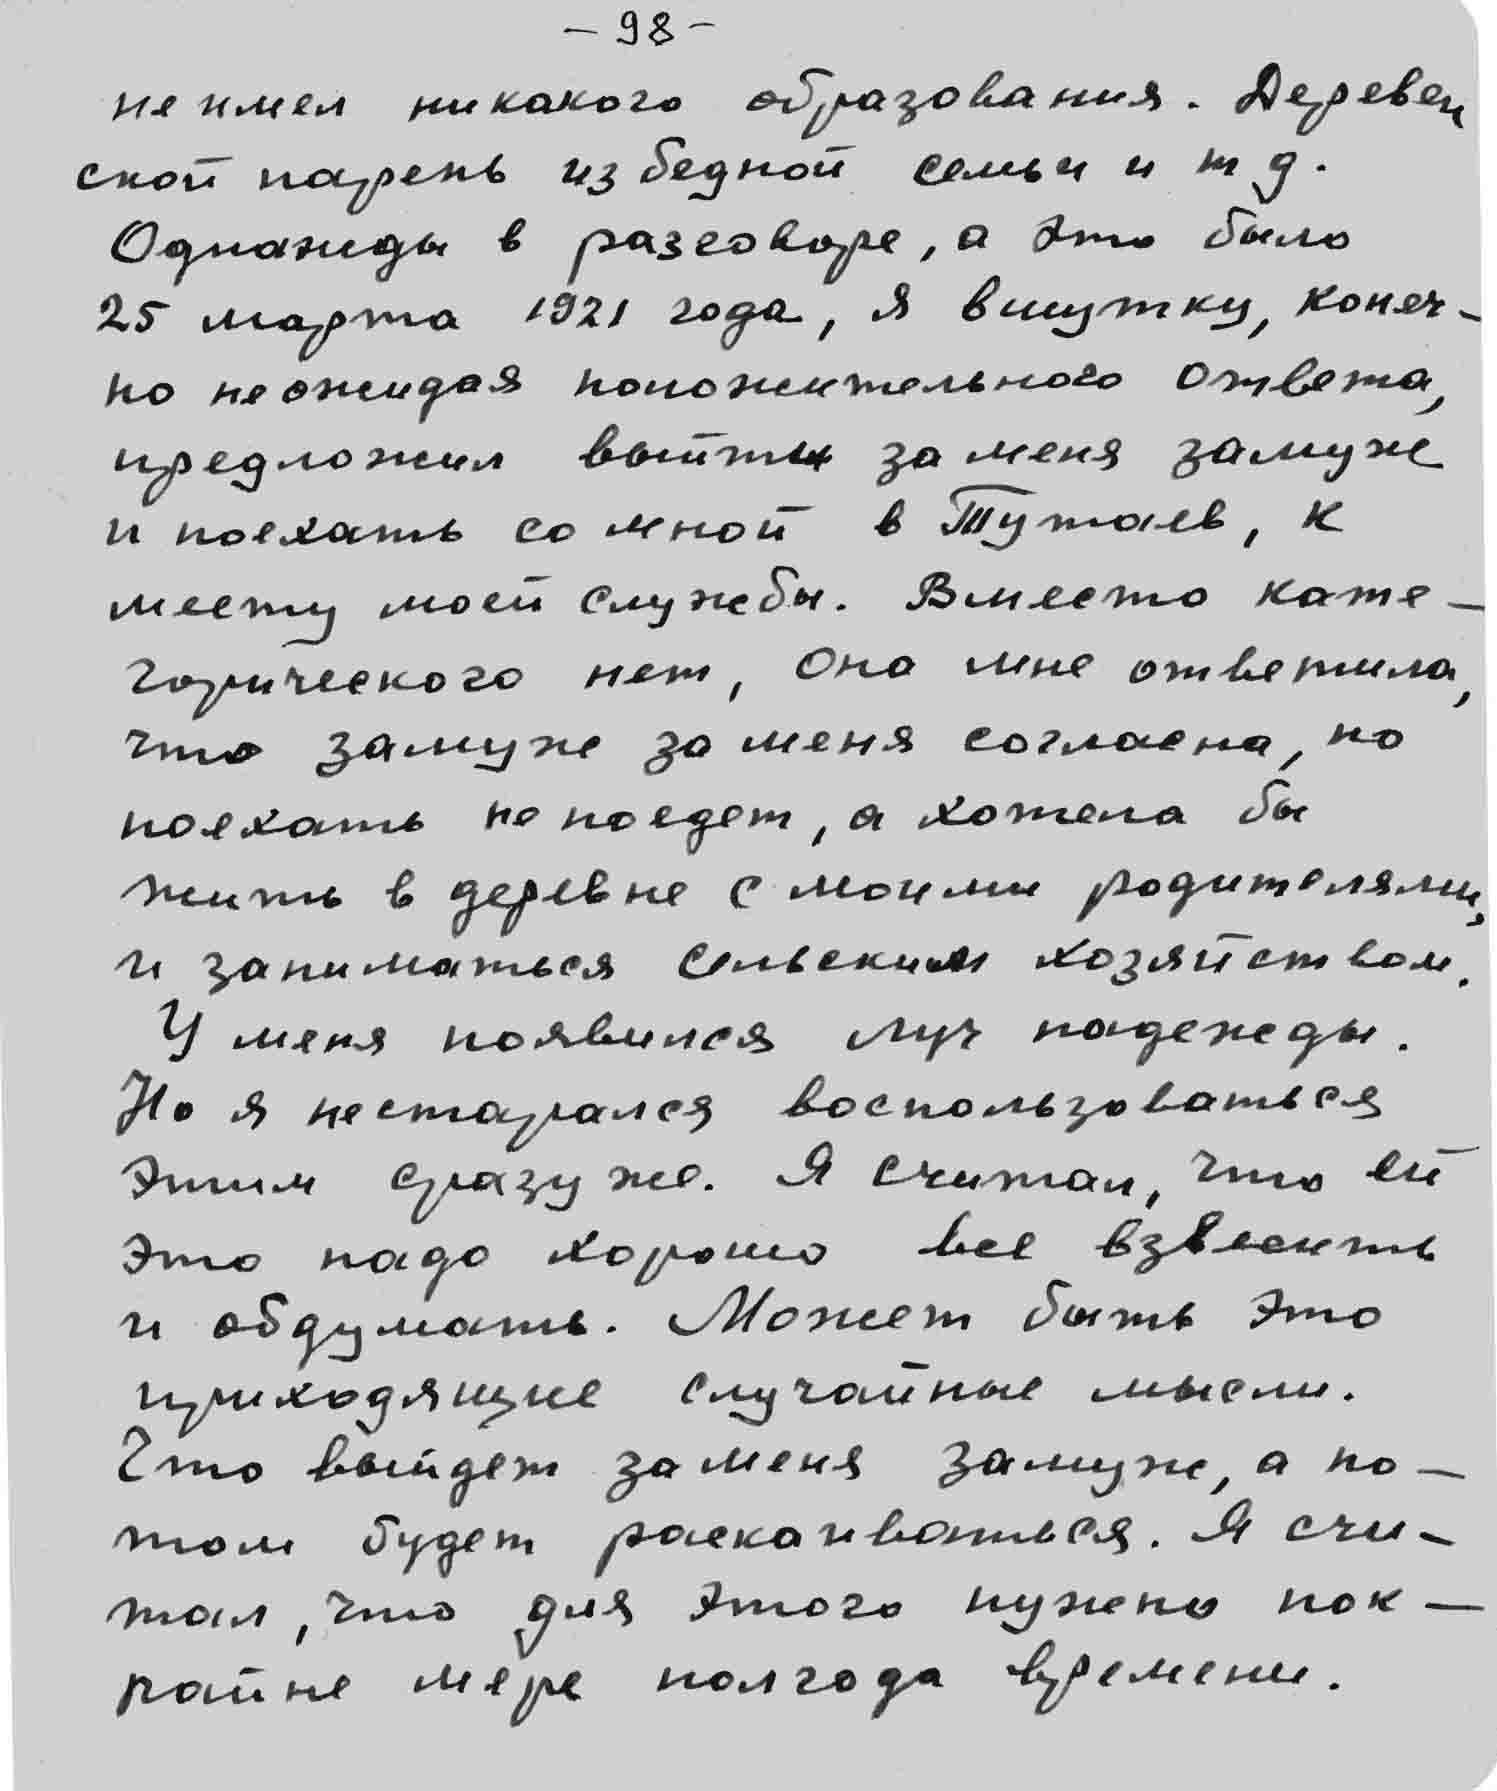 - 98 -
не имел никакого образования. Деревен
ской парень из бедной семьи и т д.
Однажды в разговоре, а это было
25 марта 1921 года, я вшутку, конеч-
но неожидая положительного ответа,
предложил выйти за меня замуж
и поехать со мной в Тутаев, к
месту моей службы. Вместо кате-
горического нет, Она мне ответила,
что замуж за меня согласна, но
поехать не поедет, а хотела бы
жить в деревне с моими родителями,
и заниматься сельским хозяйством.
У меня появился луч надежды.
Но я нестарался воспользоваться
этим сразу же. Я считал, что ей
это надо хорошо все взвесить
и обдумать. Может быть это
приходящие случайные мысли.
Что выйдет за меня замуж, а по-
том будет раскаиваться. Я счи-
тал, что для этого нужно пок-
райне мере полгода времени.